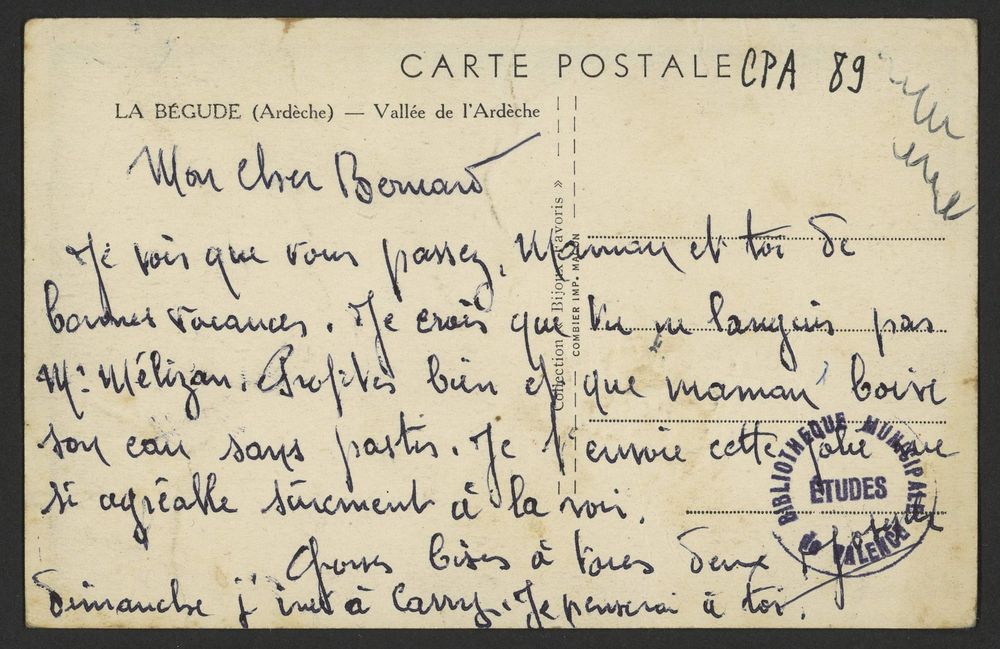 CARTE POSTALE CPA 89
LA BÉGUDE (Ardèche) — Vallée de l'Ardèche
Mon cher Bernard
Je vois que vous passez, Maman et toi de
bonnes vacances. Je crois que tu ne languis pas
Mr Mélizan. Profites bien et que maman boive
son eau sans pastis. Je t'envoie cette jolie vue
si agréable sûrement à la voir.
Grosses bises à tous deux
dimanche j'irai à Carry. Je penserai à toi.
Collection « Bijoux Favoris »
COMBIER IMP. MACON
BIBLIOTHÈQUE MUNICIPALE
ETUDES
VALENCE